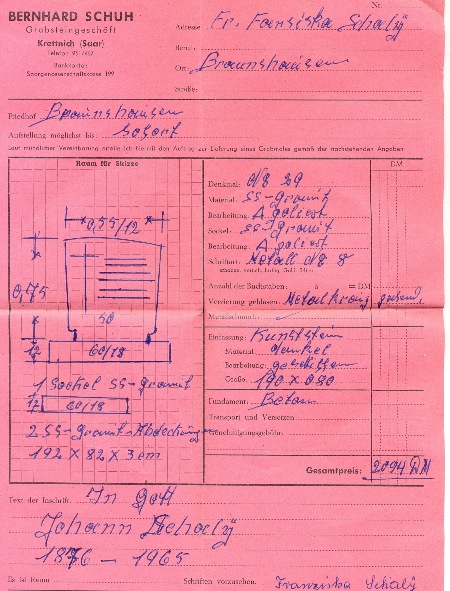 Nr.
BERNHARD SCHUH
Grabsteingeschäft
Krettnich (Saar)
Telefon
Bankkonto:
Saargenossenschaftskasse 199
Adresse Fr. Franziska Schalÿ
Beruf:
Ort: Braunshausen
Straße:
Friedhof Braunshausen
Aufstellung möglichst bis: Sofort
Laut mündlicher Vereinbarung erteile ich hiermit den Auftrag zur Lieferung eines Grabmales gemäß der nachstehenden Angaben
Raum für Skizze
0,55/12
0,75
50
12 60/18
1 Sockel SS-Granit
12 60/18
2 SS-Granit-Abdeckungen
192 x 82 x 3 cm
DM
Denkmal: N8 29
Material: SS-Granit
Bearbeitung: A poliert
Sockel: SS-Granit
Bearbeitung: A poliert
Schriftart: Metall N8 8
Anzahl der Buchstaben: à = DM
Verzierung geblasen: Metallkranz
Einfassung: Kunststein
Material dunkel
Bearbeitung: geschliffen
Größe: 190 x 080
Fundament: Beton
Transport und Versetzen
Genehmigungsgebühr:
Gesamtpreis: 2094 DM
Text der Inschrift: In Gott
Johann Schalÿ
1876 - 1965
Es ist Raum Schriften vorzusehen.
Franziska Schalÿ